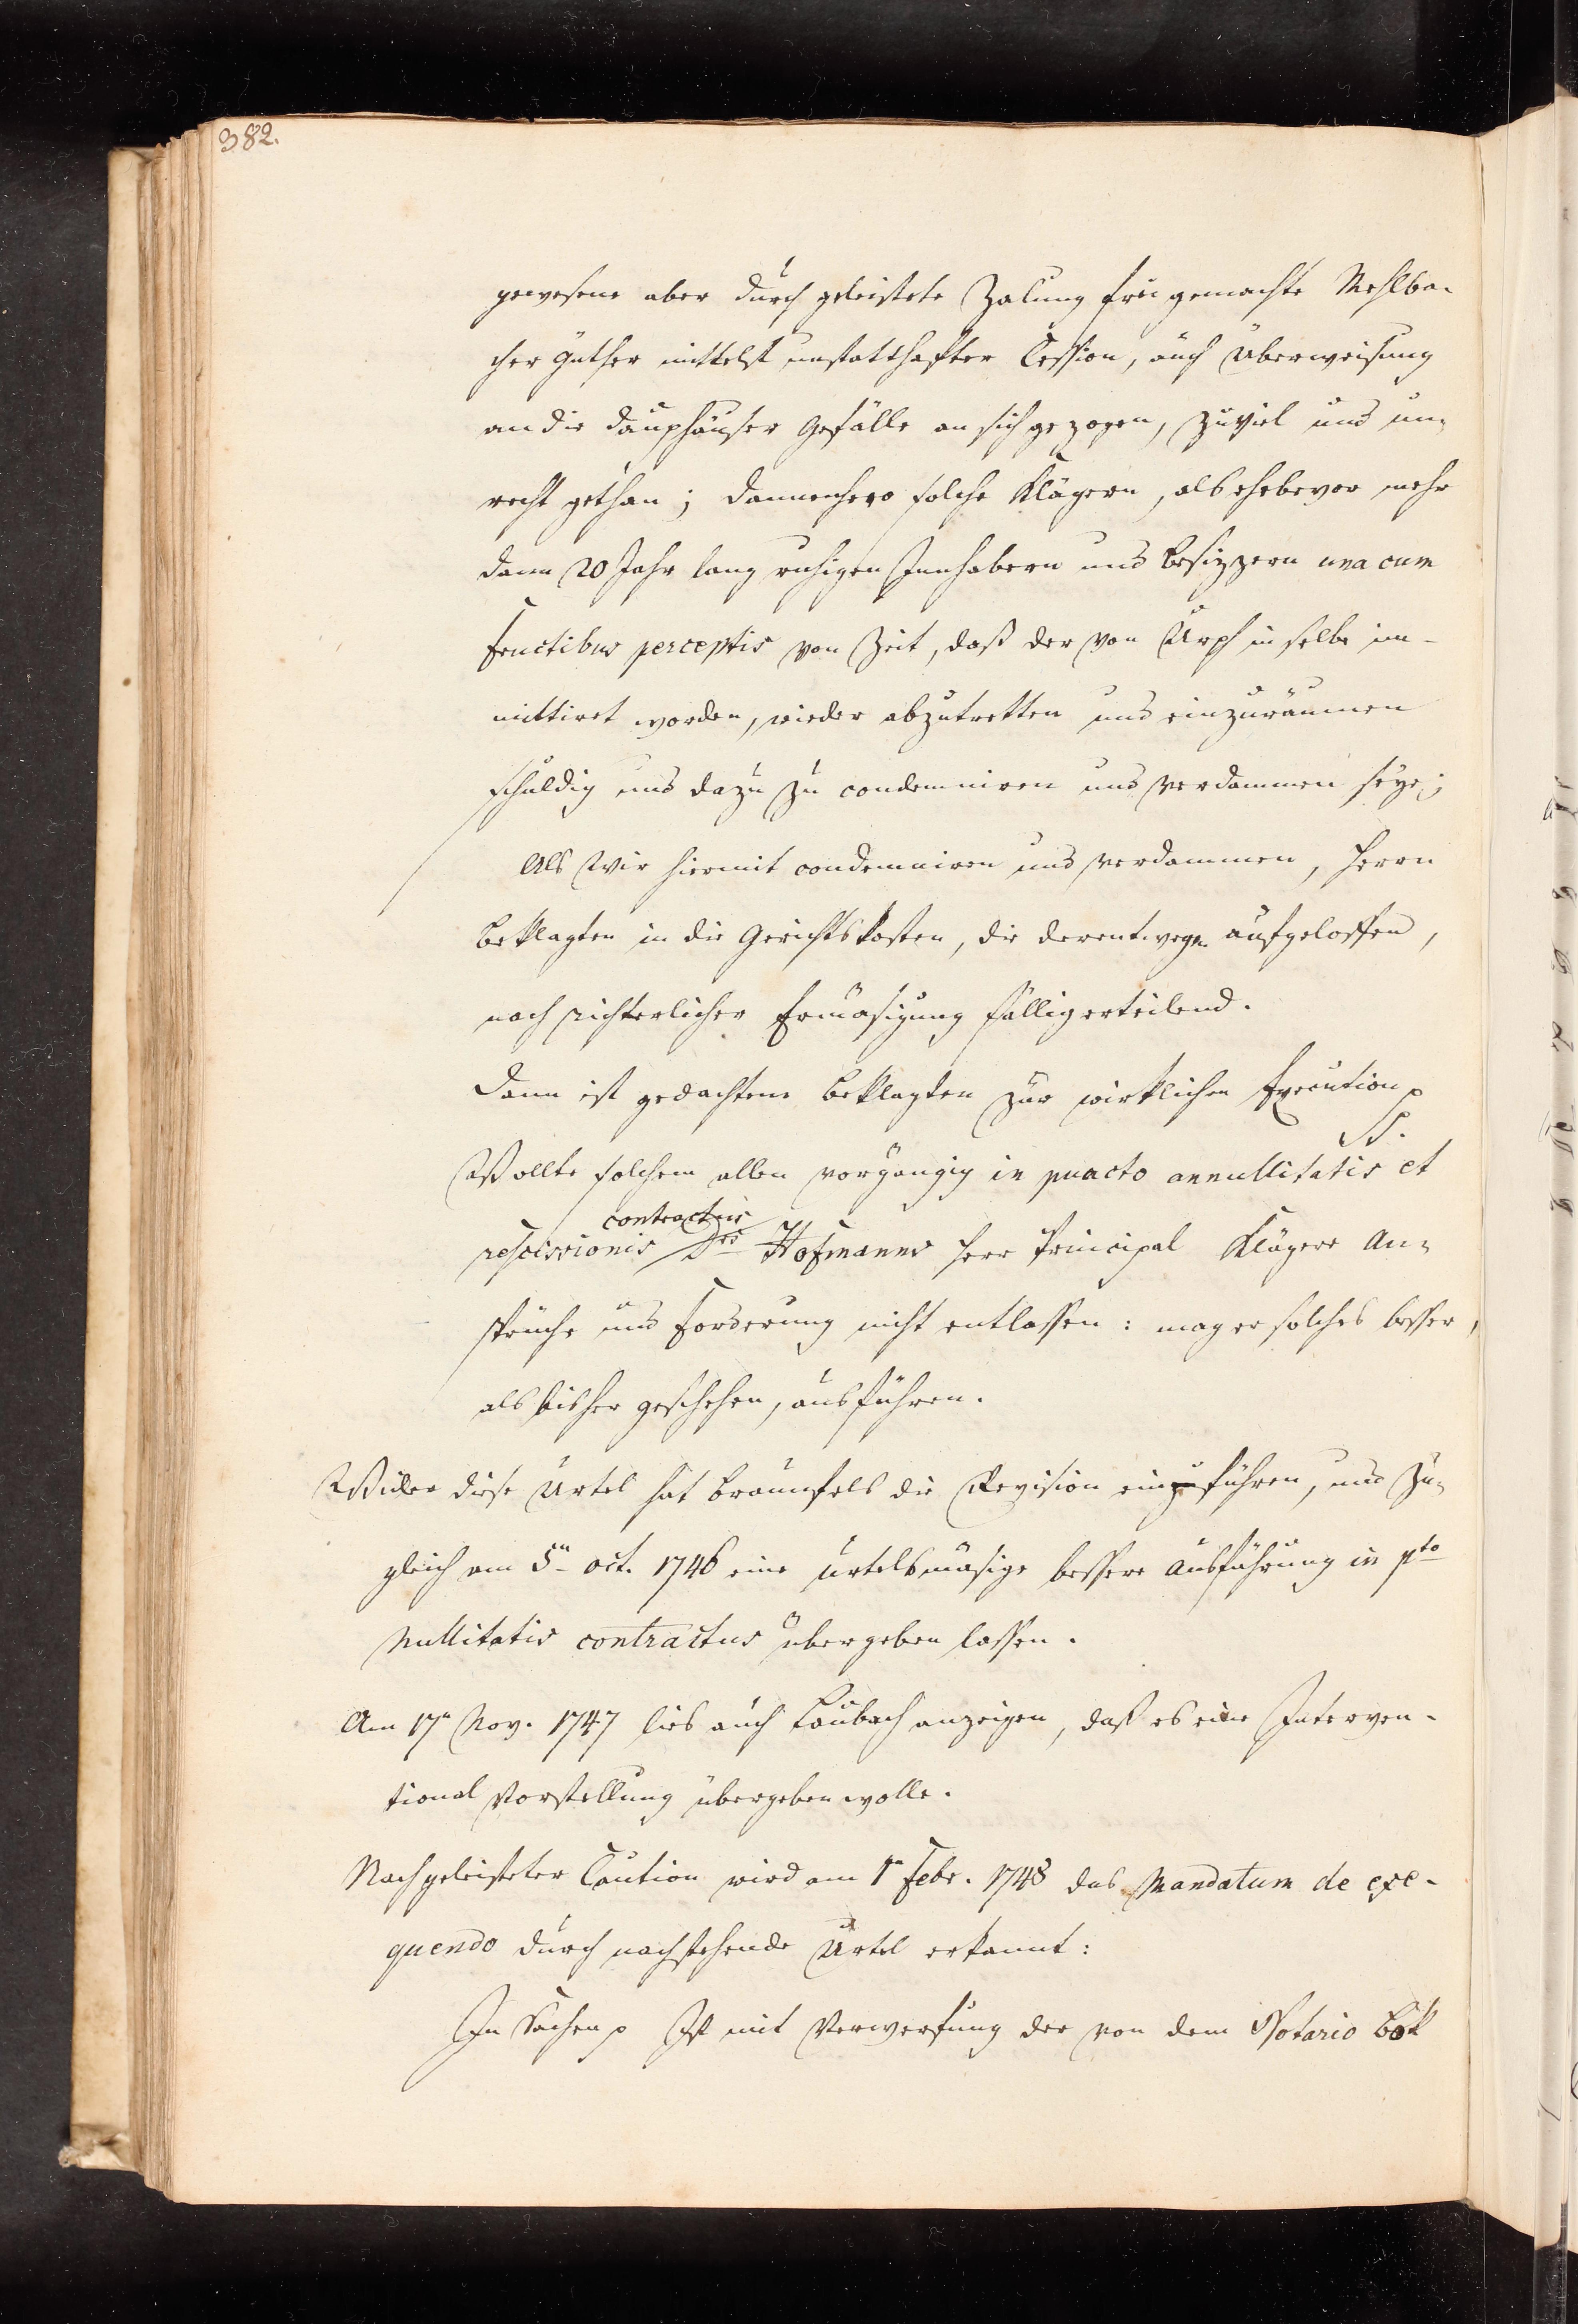 382.
gewesene aber durch geleistete Zalung frei gemachte Mehlba-
cher Güther mittelst unstatthafter Cession, auch Überweisung
an die Dauphäuser Gefälle an sich gezogen, zuviel und un-
recht gethan; dannenhero solche Klägern, als ehebevor mehr
dann 20 Jahr lang ruhigen Innhabern und Besizzern una cum
fructibus perceptis von Zeit, daß der von Urph in selbe im-
mittiret worden, wieder abzutretten und einzuräumen
schuldig und dazu zu condemniren und verdammen seye;
Als Wir hiermit condemniren und verdammen, Herrn
Beklagten in die Gerichtskosten, die derentwegen aufgeloffen,
nach richterlicher Ermäsigung fällig erteilend.
Dann ist gedachtem Beklagten zur wirklichen Execution p
SS.
Wollte solchem allen vorgängig in puncto annullitatis et
contractus
rescissionis Drs Hofmanns Herr Principal Klägere An-
sprüche und Forderung nicht entlassen: mag er solches besser,
als bisher geschehen, ausführen.
Wider diese Urtel hat Braunfels die Revision einzuführen, und zu-
gleich am 5n Oct. 1746 eine urtelsmäsige bessere Ausführung in pto
Nullitatis contractus übergeben lassen.
Am 17n Nov. 1747 lies auch Laubach anzeigen, daß es eine Interven-
tional Vorstellung übergeben wolle.
Nach geleisteter Caution wird am 1n Febr. 1748 das Mandatum de exe-
quendo durch nachstehende Urtel erkannt:
In Sachen p Ist mit Verwerfung der von dem Notario Bök